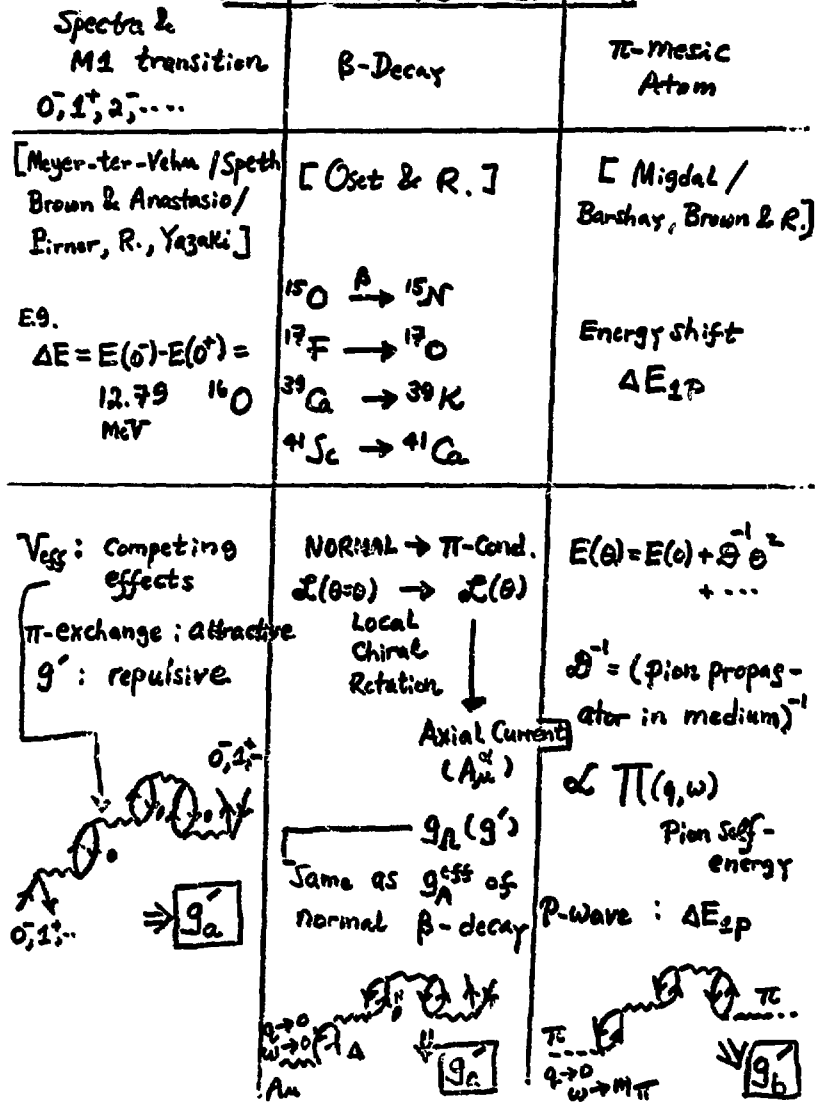 Spectra &
M1 transition
0⁻, 1⁺, 2⁻, ....
[Meyer-ter-Vehn / Speth
Brown & Anastasio /
Pirner, R., Yazaki]
E.g.
ΔE = E(0⁻)-E(0⁺) =
12.79 ¹⁶O
MeV
V_eff : Competing
effects
π-exchange ; attractive
g′ : repulsive
0⁻, 1⁺..
0⁻, 1⁺..
⇒ g′_a
β-Decay
[ Oset & R. ]
¹⁵O →^β ¹⁵N
¹⁷F → ¹⁷O
³⁹Ca → ³⁹K
⁴¹Sc → ⁴¹Ca
NORMAL → π-Cond.
ℒ(θ=0) → ℒ(θ)
Local
Chiral
Rotation
Axial Current
(A_μ^α)
g_A(g′)
Same as g_A^eff of
normal β-decay
q→0
ω→0
Δ
A_μ
g′_a
π-mesic
Atom
[ Migdal /
Barshay, Brown & R.]
Energy shift
ΔE_1P
E(θ) = E(0) + 𝒟⁻¹ θ²
+ ...
𝒟⁻¹ = (pion propag-
ator in medium)⁻¹
∝ Π(q,ω)
Pion Self-
energy
P-wave : ΔE_1P
π
π
q→0
ω→m_π
g′_b